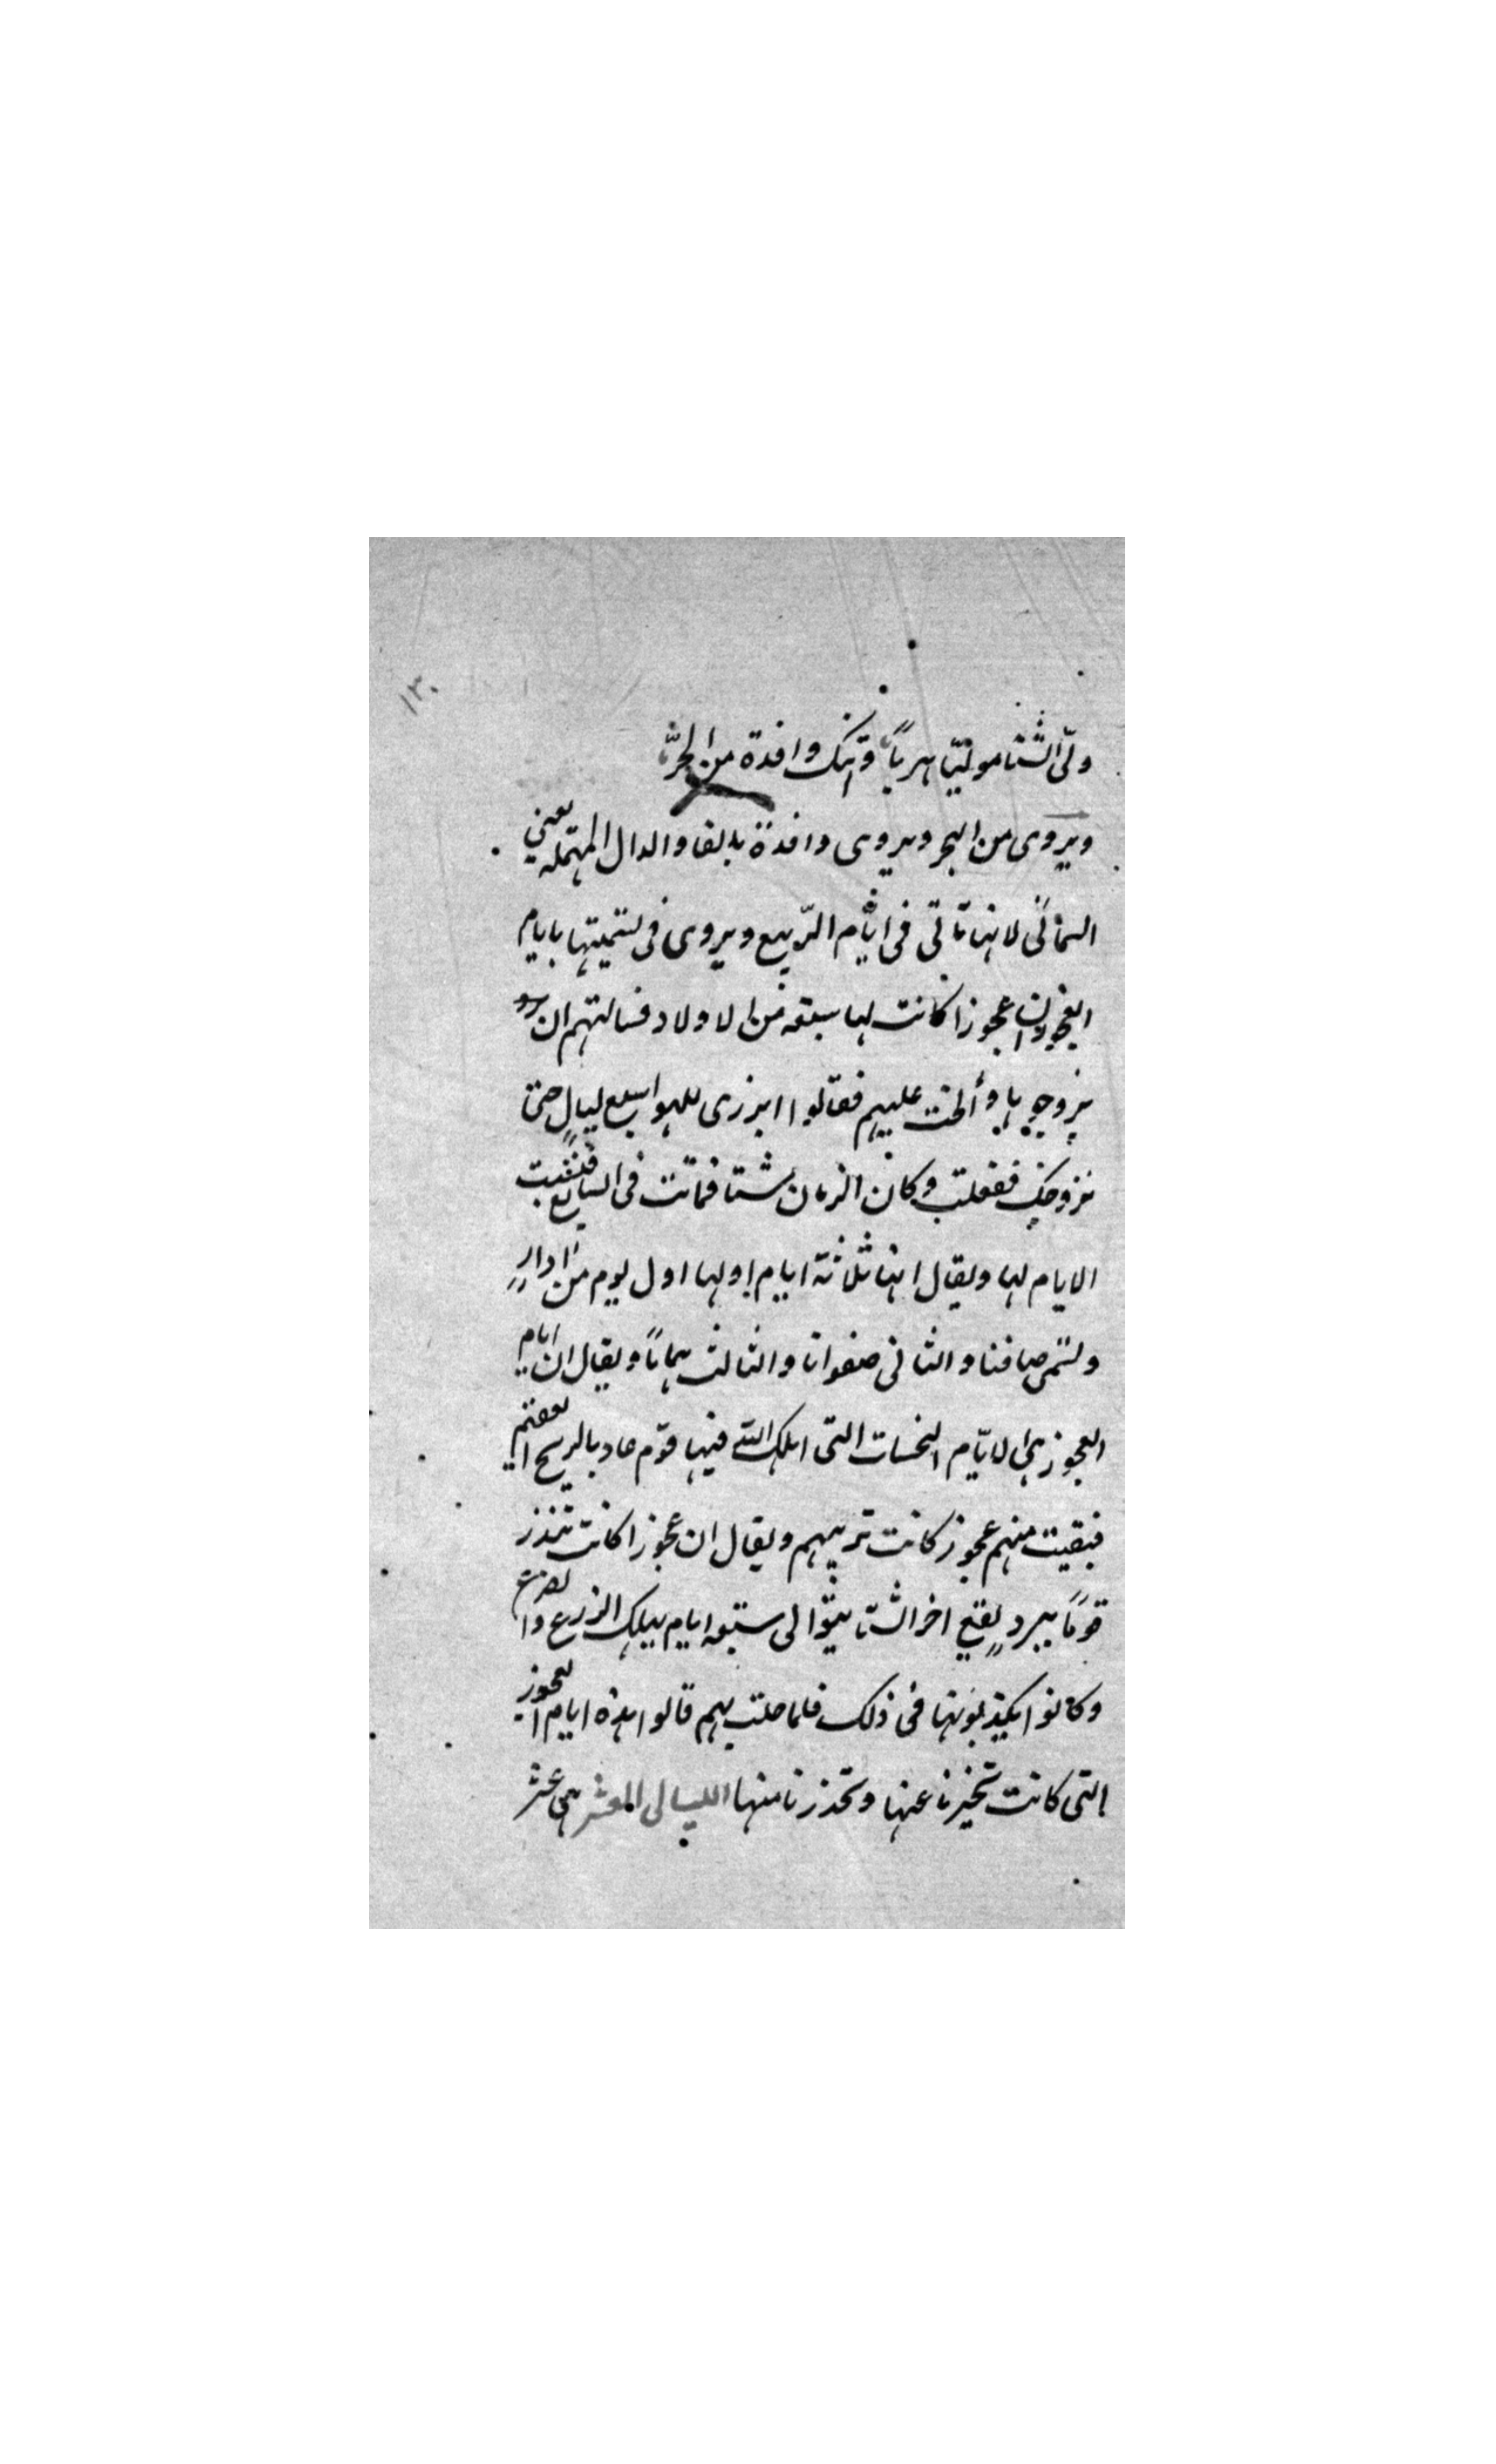 ١٣٠
ولّى الشّتا مولّيا هرباً وأتتك وافدة من الحرّ
ويروى من البحر ويروى وافدة بالفا والدال المهملة يعني
السمائي لانها تأتي في ايّام الرّبيع ويروى في تسميتها بايام
العجوز ان عجوزا كانت لها سبعة من الاولاد فسالتهم ان
يزوجوها وألحت عليهم فقالوا ابرزي للهوا سبع ليالٍ حتى
نزوجك ففعلت وكان الزمان شتا فماتت في السابع فنسبت
الايام لها ويقال انها ثلاثة ايام اولها اول يوم من اذار
وتسمى صافنا والثاني صفوانا والثالث هماماً ويقال ان ايام
العجوز هي الايّام النحسات التي اهلك الله فيها قوم عاد بالريح العقيم
فبقيت منهم عجوز كانت ترثيهم ويقال ان عجوزا كانت تنذر
قوماً ببردٍ يقع اخر الشتا يتوالى سبعة ايام يهلك الزرع والضرع
وكانوا يكذبونها في ذلك فلما حلت بهم قالوا هذه ايام العجوز
التي كانت تخبرنا عنها وتحذرنا منها الليالي العشر هي عشر